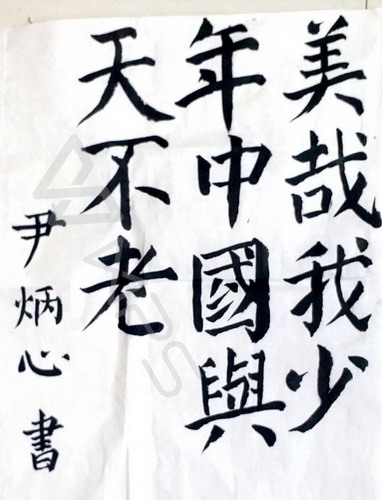 美哉我少
年中國與
天不老
尹炳心書